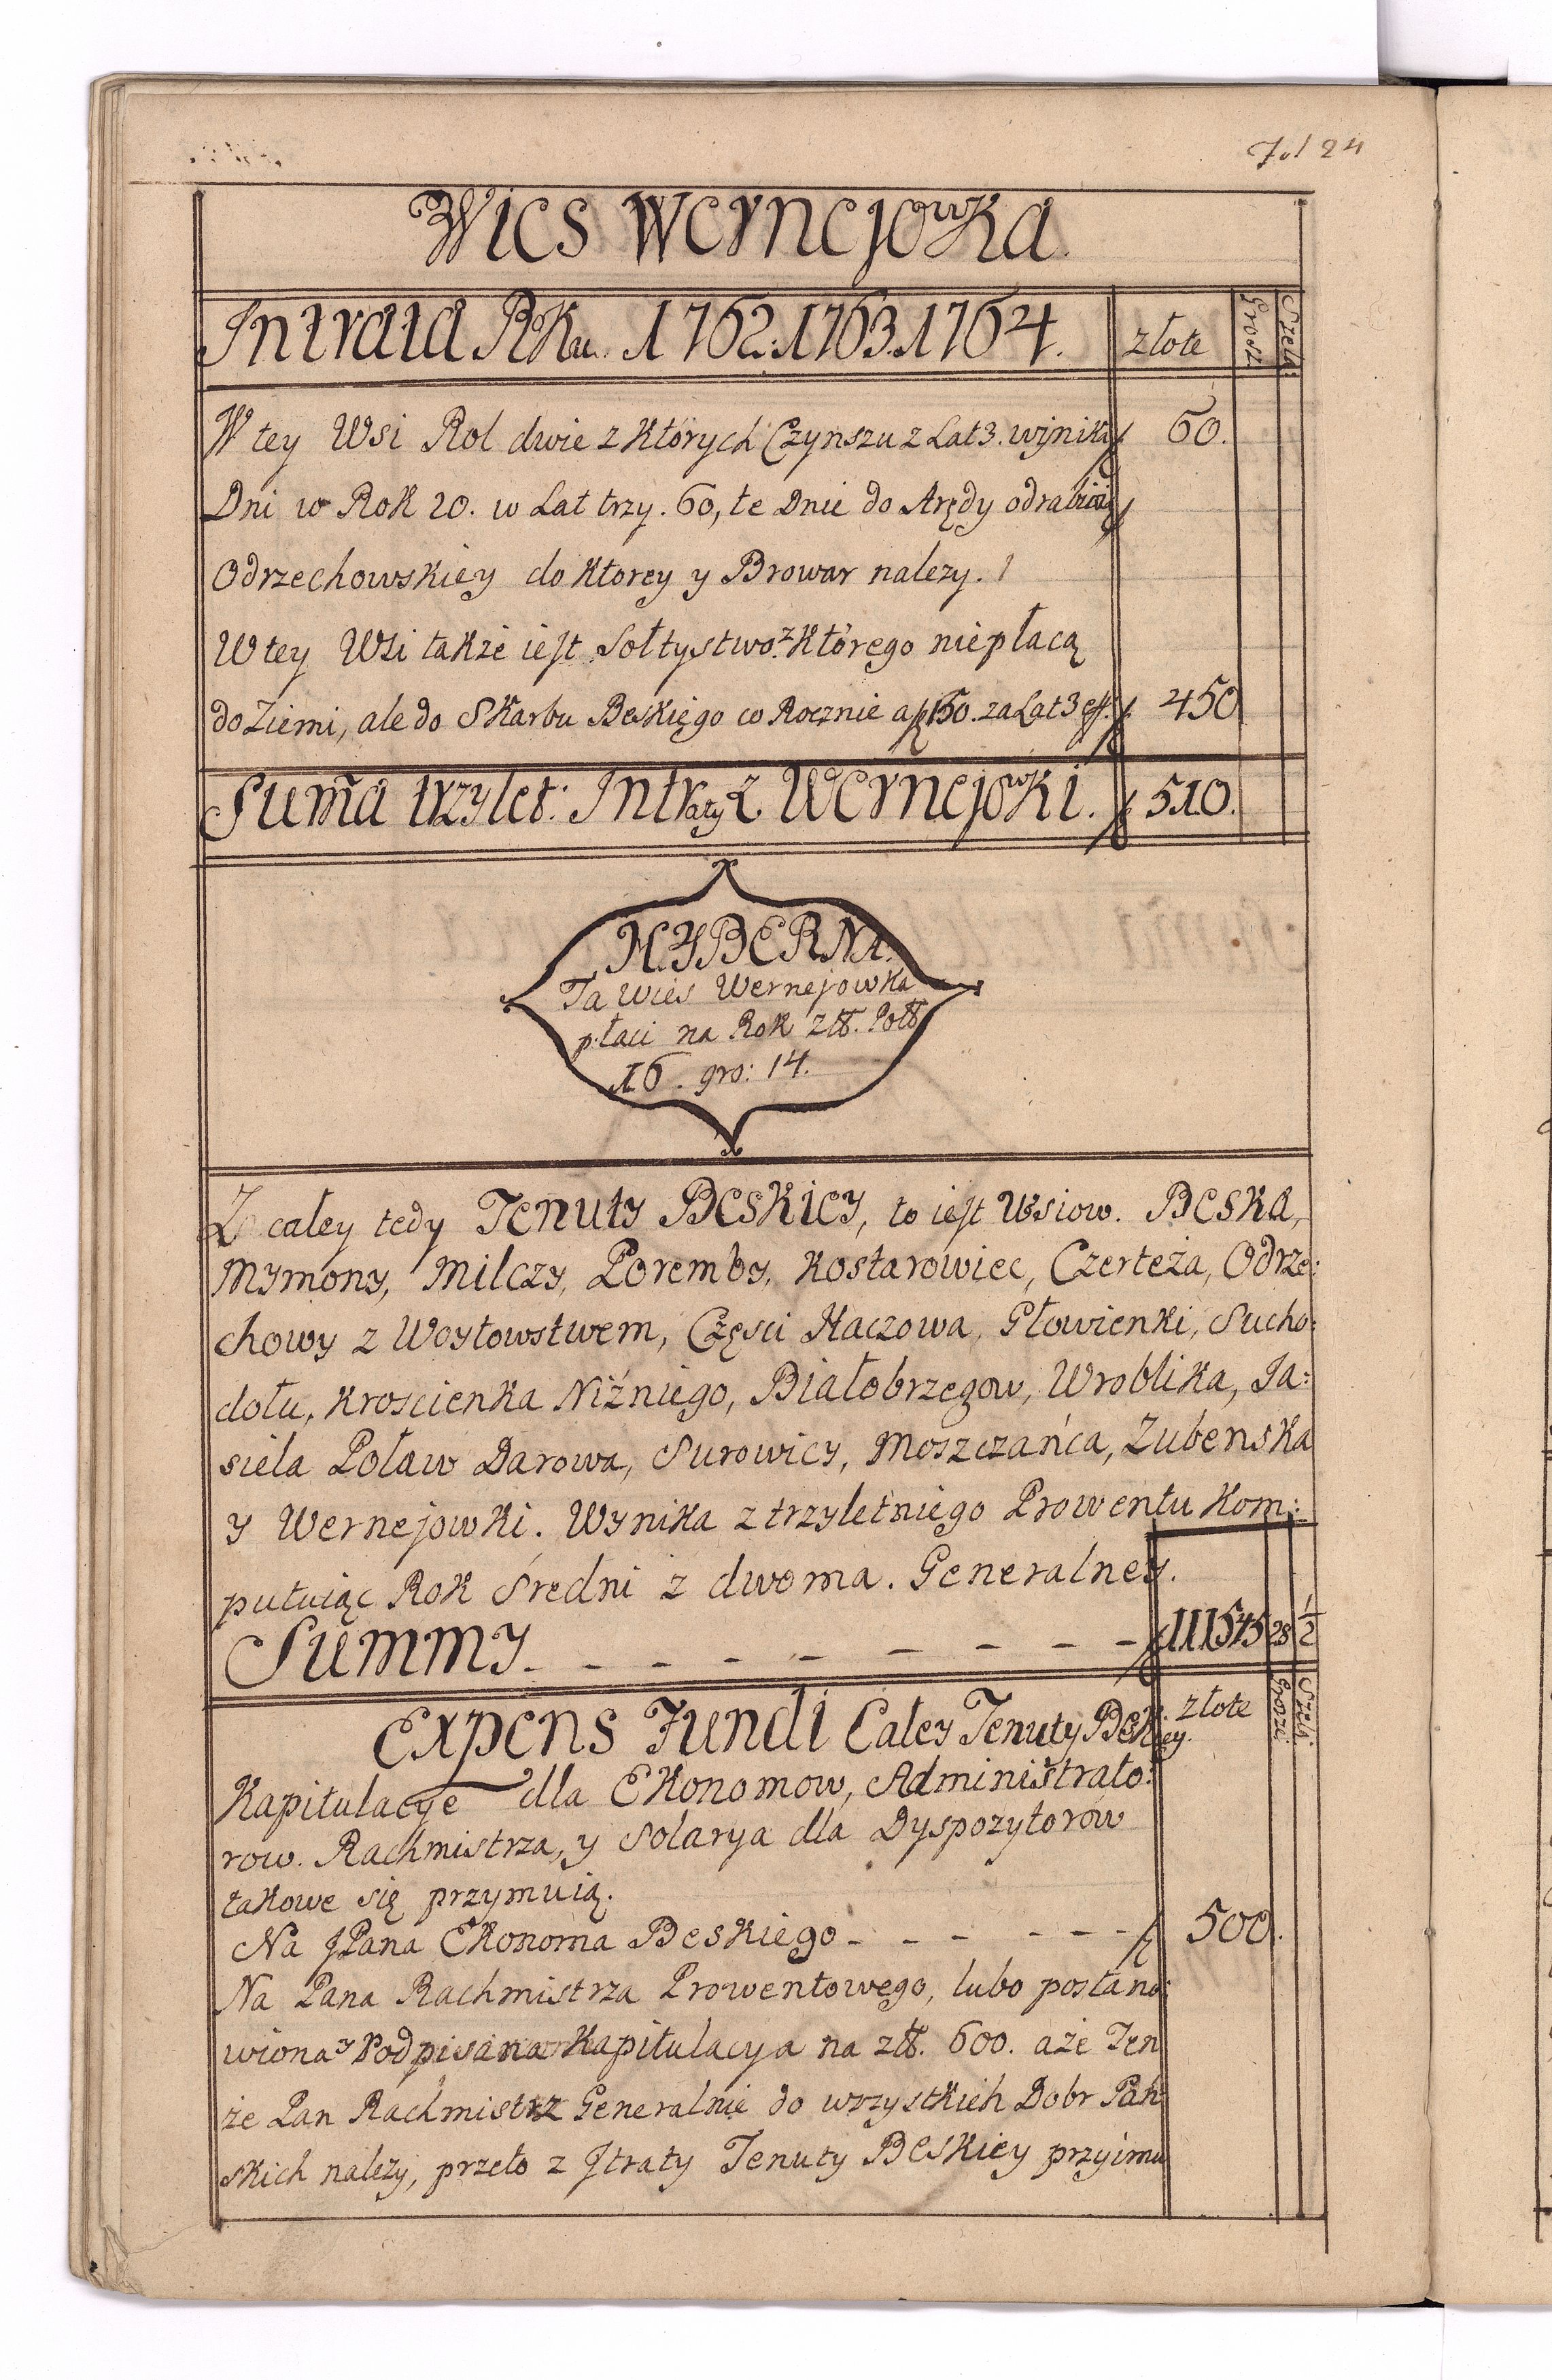 Fol 24
Wies Wernejowka.
Intrata Roku. 1762.1763.1764. złote Grosz Szela:
W tey Wsi Rol dwie z ktòrych Czynszu z Lat 3. wynika f 60.
Dni w Rok 20. w Lat trzy. 60, te Dnie do Arędy odrabiaią
Odrzechowskiey do ktorey y Browar nalezy.
W tey Wsi także iest Sołtystwo z którego niepłacą
do Ziemi, ale do Skarbu Beskięgo co Rocznie a f 150. za Lat 3 eff. f. 450
Sum̃a trzylet: Intraty z Wernejowki. f 510.
HYBERNA.
Ta Wies Wernejowka
płaci na Rok ztt. Poltt
16. gro: 14.
Z całey tedy Tenuty Beskiey, to iest Wsiow. Beska,
Mymony, Milczy, Poremby, Kostarowiec, Czerteża, Odrze:
chowy z Woytowstwem, Częsci Haczowa, Głowienki, Sucho:
dołu, Kroscienka Niżniego, Białobrzegow, Wroblika, Ja:
siela Polaw Darowa, Surowicy, Moszczańca, Zubenska
y Wernejowki. Wynika z trzyletniego Prowentu Kom:
putuiąc Rok Sredni z dwoma. Generalney.
Summy. - - - - - - - - f 111545 28 1/2
Expens Fundi Całey Tenuty Beskiey. złote Groszi Szela
Kapitulacye dla Ekonomow, Administrato:
row. Rachmistrza, y Solarya dla Dyspozytorow
takowe się przymuią.
Na JPana Ekonoma Beskiego - - - - - - f 500.
Na Pana Rachmistrza Prowentowego, lubo postano:
wiona y Podpisana Kapitulacya na ztt. 600. aże Ten
że Pan Rachmistrz Generalnie do wszystkich Dobr Pań
skich należy, przeto z Jtraty Tenuty Beskiey przyimu